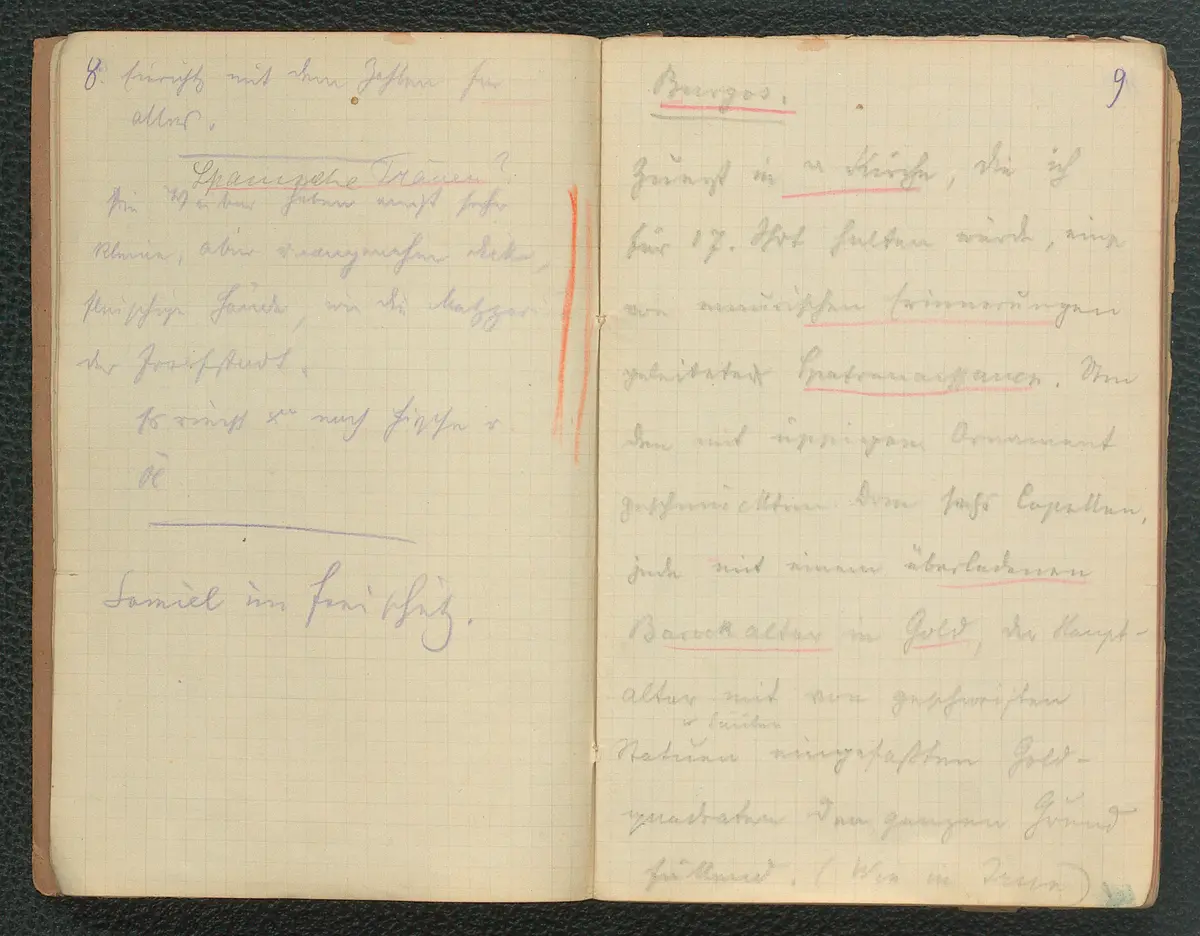 8.
mit dem Zahlen für
alles.
Spanische Frauen?
Die Weiber haben meist sehr
kleine, aber unangenehm dicke,
fleischige Hände, wie die Metzger
der Freistadt.
Es riecht nach Fische u.
Öl
Samiel im Freischütz.
9
Burgos.
Zuerst in Kirche, die ich
für 17. Jhdt halten würde, eine
von maurischen Erinnerungen
geleitete Spätrenaissance. Um
den mit üppigem Ornament
geschmückten Dom sechs Capellen,
jede mit einem überladenen
Barockaltar in Gold, der Haupt-
altar mit von geschweiften
u Säulen
Statuen eingefaßten Gold-
quadraten den ganzen Grund
füllend. (Wie in